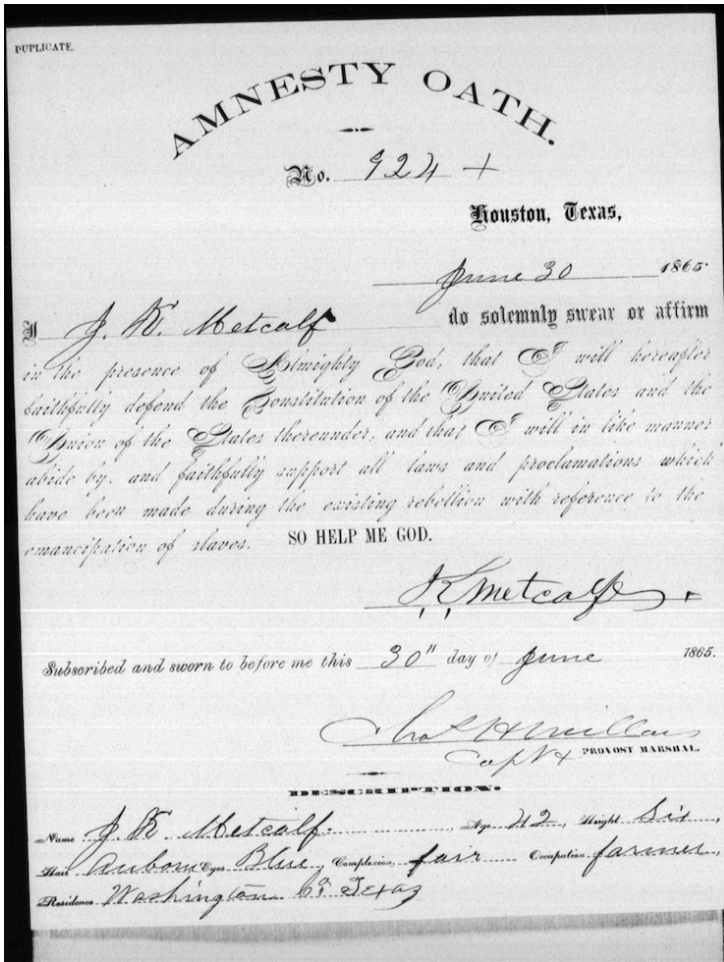 DUPLICATE.
AMNESTY OATH.
No. 924 +
Houston, Texas,
June 30 1865
I J. K. Metcalf do solemnly swear or affirm
in the presence of Almighty God, that I will hereafter
faithfully defend the Constitution of the United States and the
Union of the States thereunder, and that I will in like manner
abide by, and faithfully support all laws and proclamations which
have been made during the existing rebellion with reference to the
emancipation of slaves. SO HELP ME GOD.
J K Metcalf
Subscribed and sworn to before me this 30" day of June 1865.
Capt &
PROVOST MARSHAL.
DESCRIPTION.
Name J. K. Metcalf. Age 42, Height Six,
Hair Auborn Eyes Blue, Complexion, fair Occupation farmer,
Residence Washington Co Texas